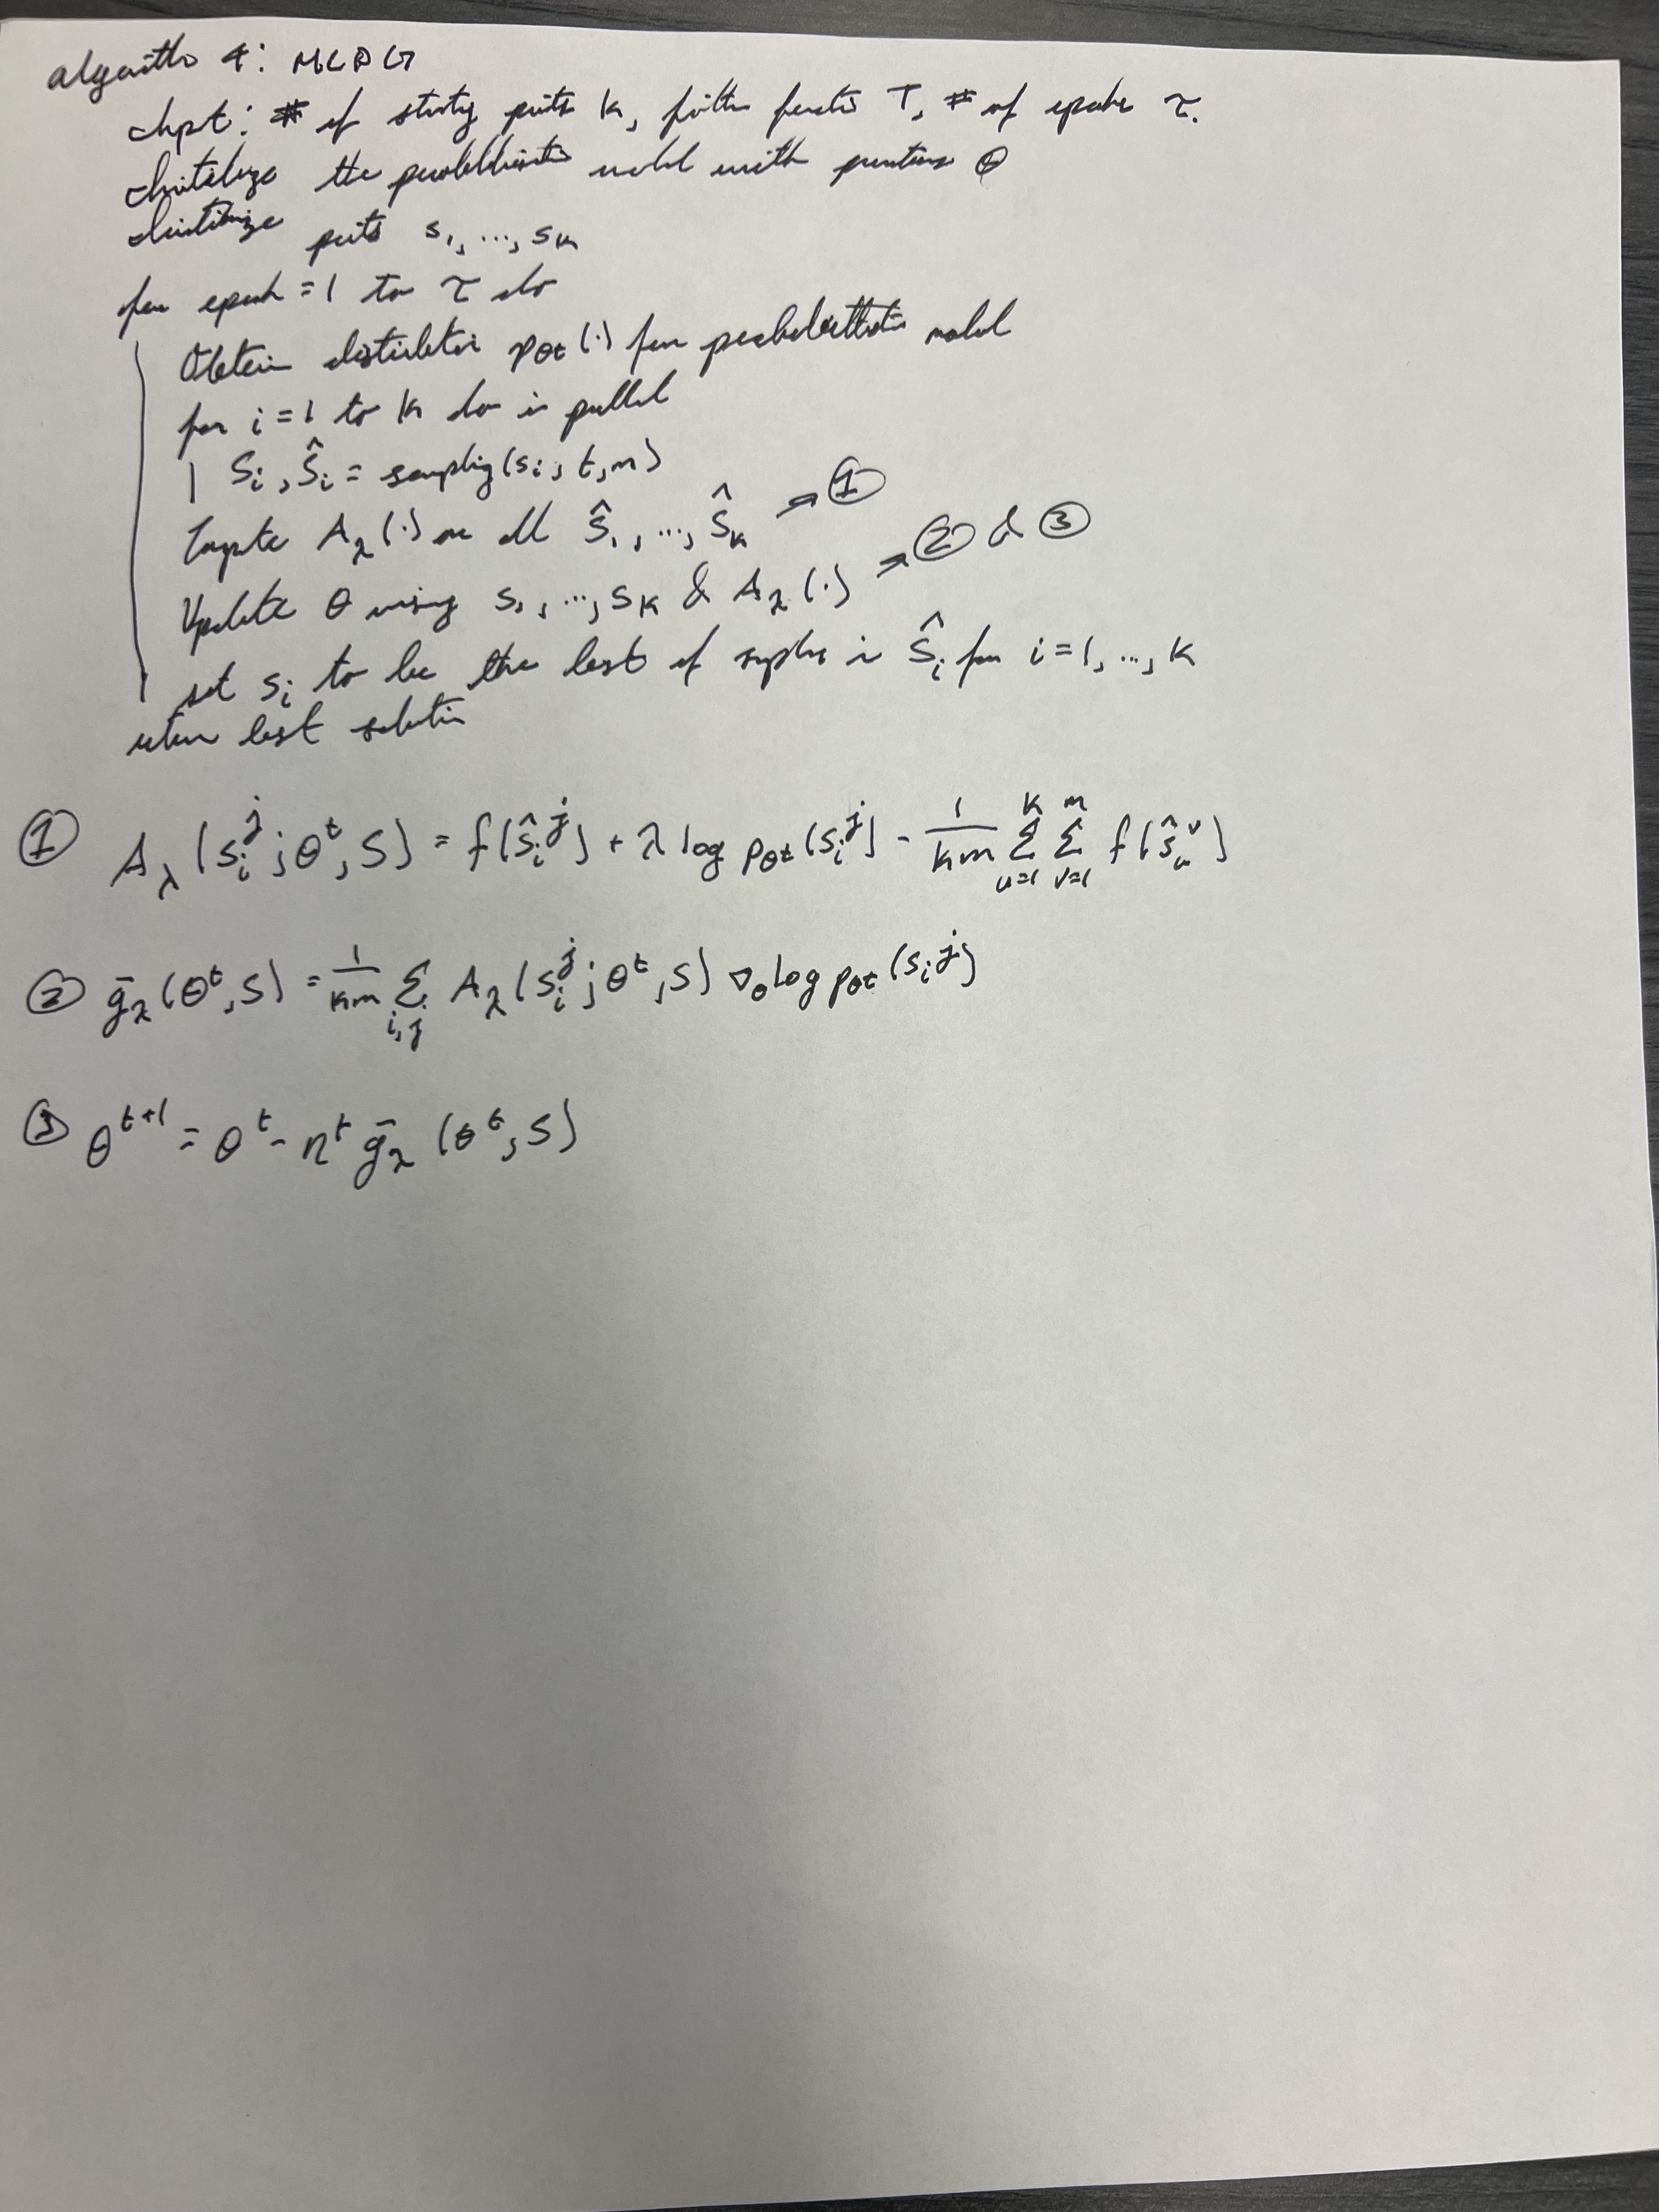 algorithm 4: MCPG
Input: # of starting points k, filter function T, # of epochs τ.
Initialize the probabilistic model with parameters θ
Initialize points s₁, ..., sₖ
for epoch = 1 to τ do
Obtain distribution p_θt(·) for probabilistic model
for i = 1 to k do in parallel
Sᵢ, Ŝᵢ = sampling(sᵢ, t, m)
Compute A_λ(·) on all Ŝ₁, ..., Ŝₖ → ①
Update θ using s₁, ..., sₖ & A_λ(·) → ② & ③
set sᵢ to be the best of samples in Ŝᵢ for i = 1, ..., k
return best solution
① A_λ(sᵢʲ; θᵗ, S) = f(ŝᵢʲ) + λ log p_θt(sᵢʲ) - 1/(km) Σ_{u=1}^{k} Σ_{v=1}^{m} f(ŝᵤᵛ)
② ḡ_λ(θᵗ, S) = 1/(km) Σ_{i,j} A_λ(sᵢʲ; θᵗ, S) ∇_θ log p_θt(sᵢʲ)
③ θᵗ⁺¹ = θᵗ - ηᵗ ḡ_λ(θᵗ, S)